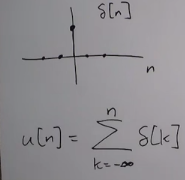 δ[n]
n
u[n] = ∑_{k=-∞}^{n} δ[k]